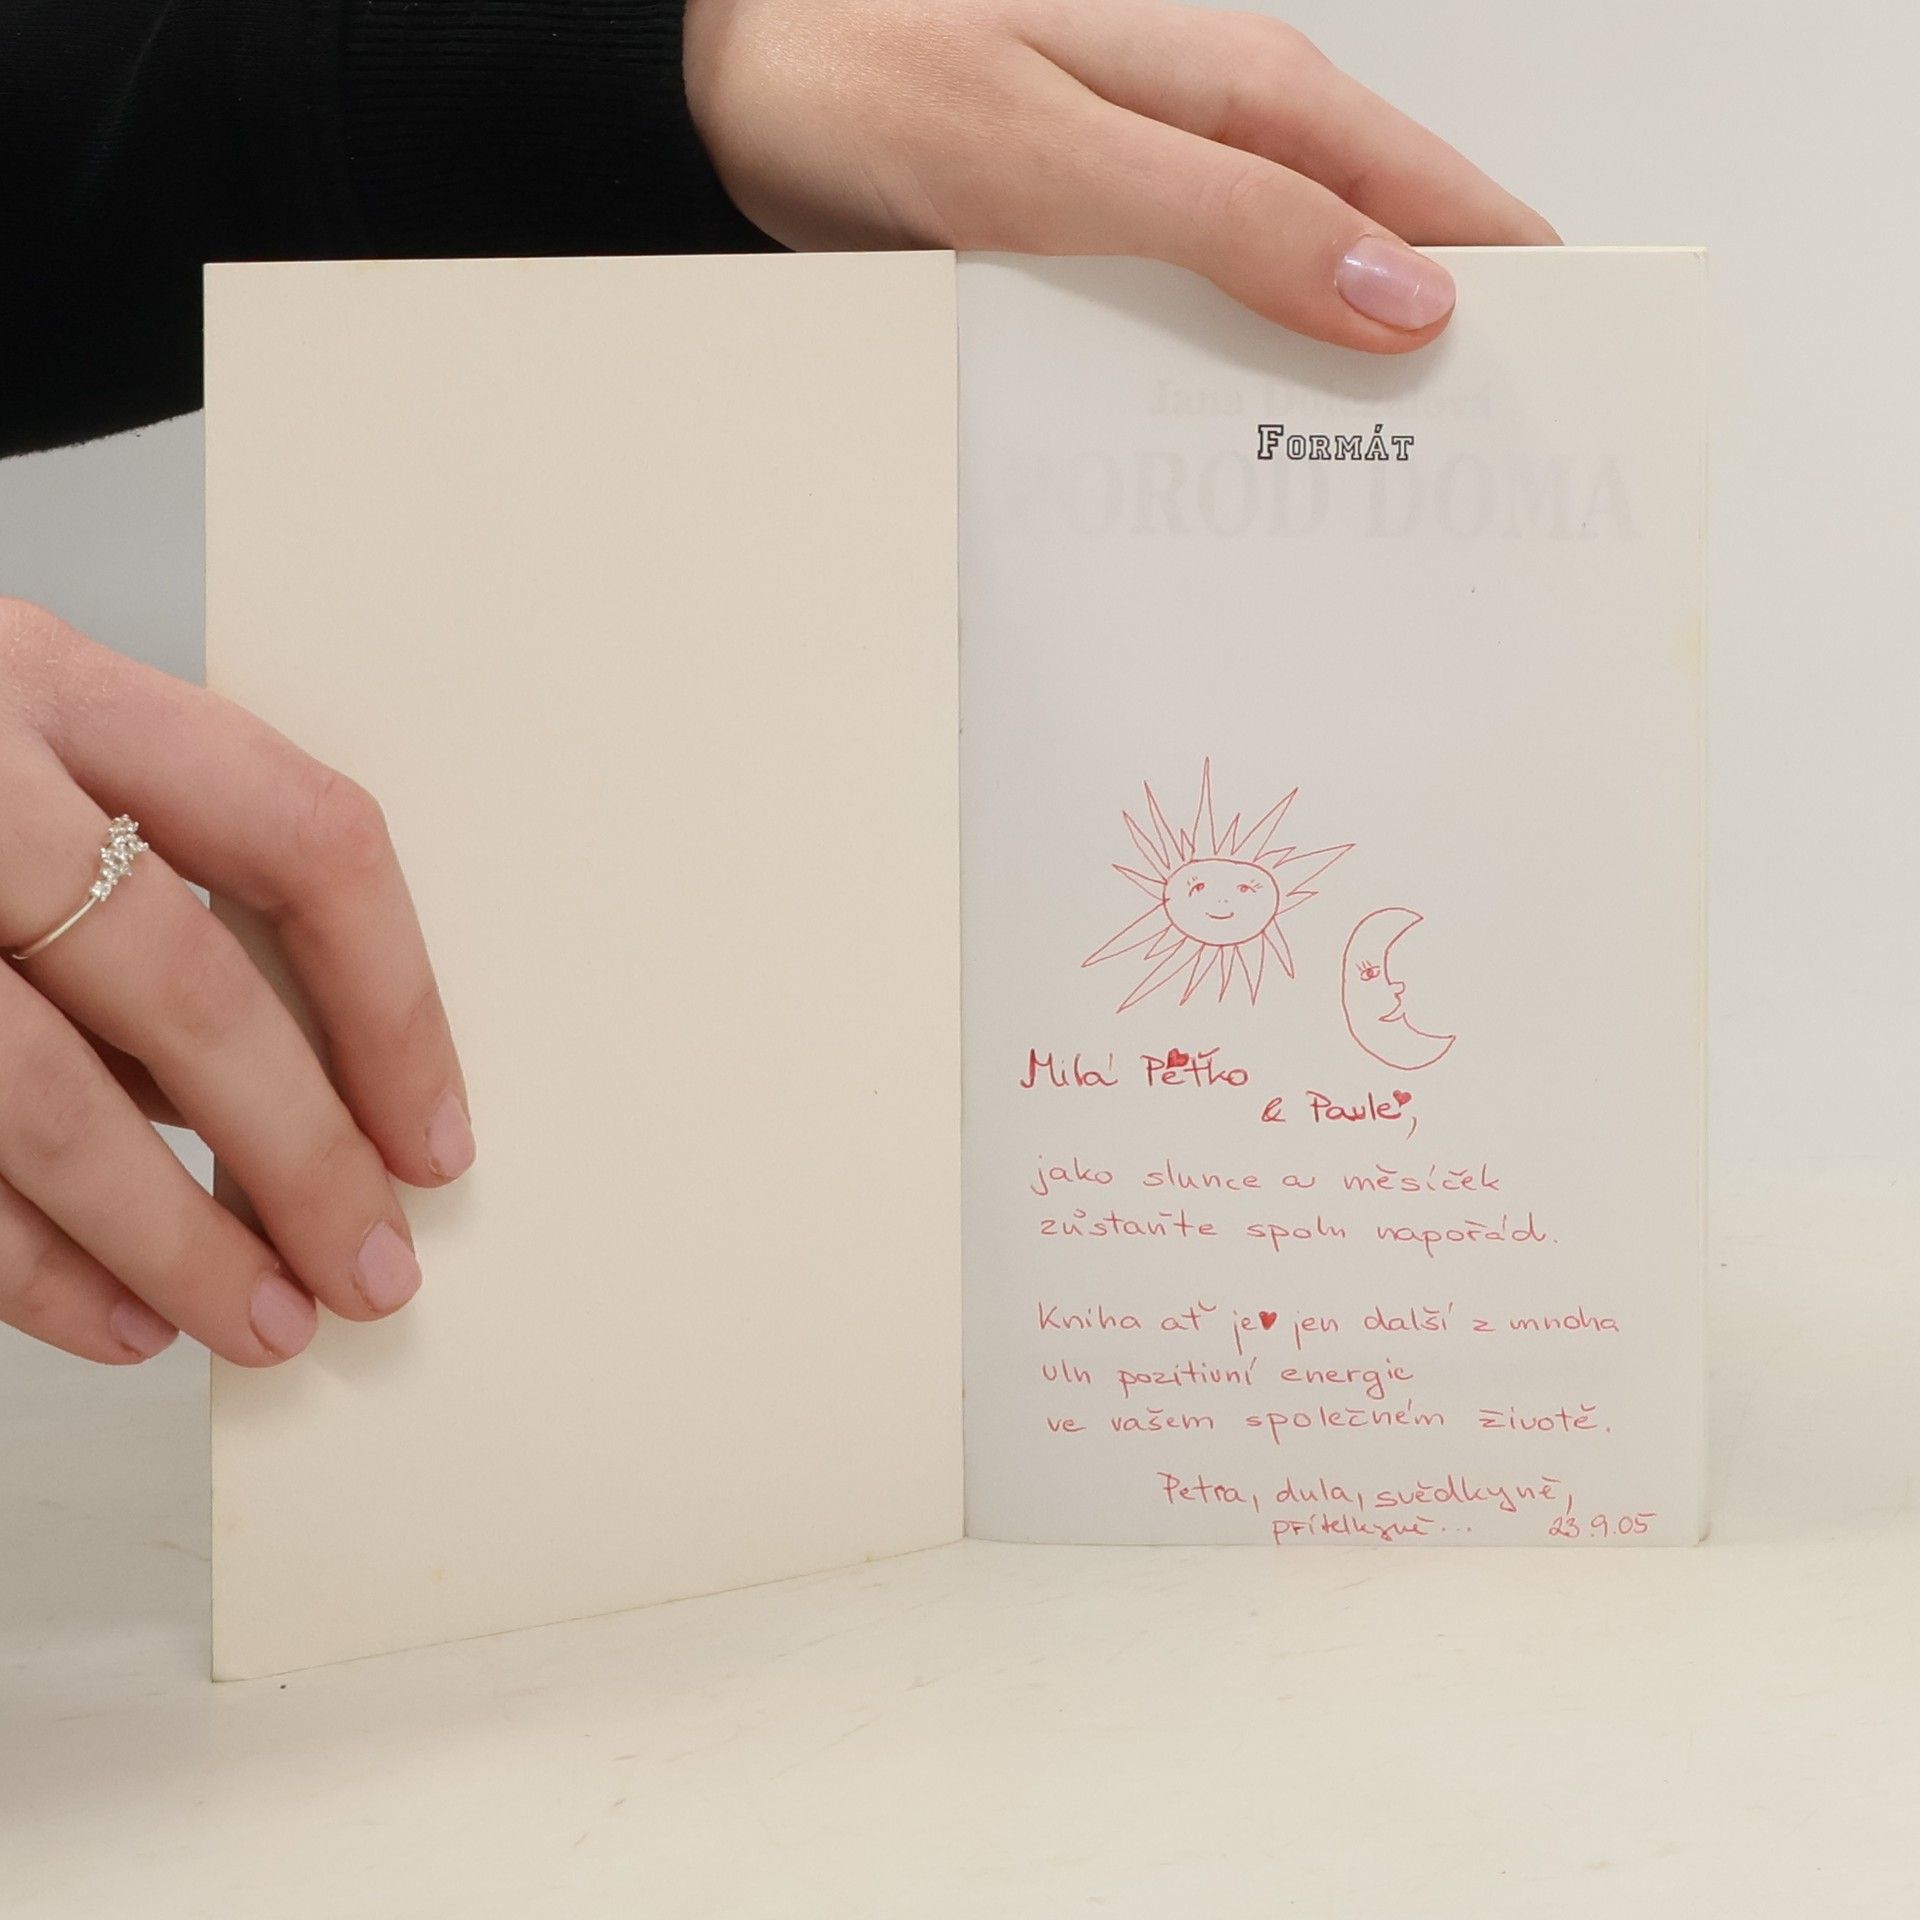 FORMÁT
OROD DOMA
Milá Peťko
& Pavle,
jako slunce a měsíček
zůstaňte spolu napořád.
Kniha ať je jen další z mnoha
vln pozitivní energie
ve vašem společném životě.
Petra, dula, svědkyně,
přítelkyně... 23.9.05